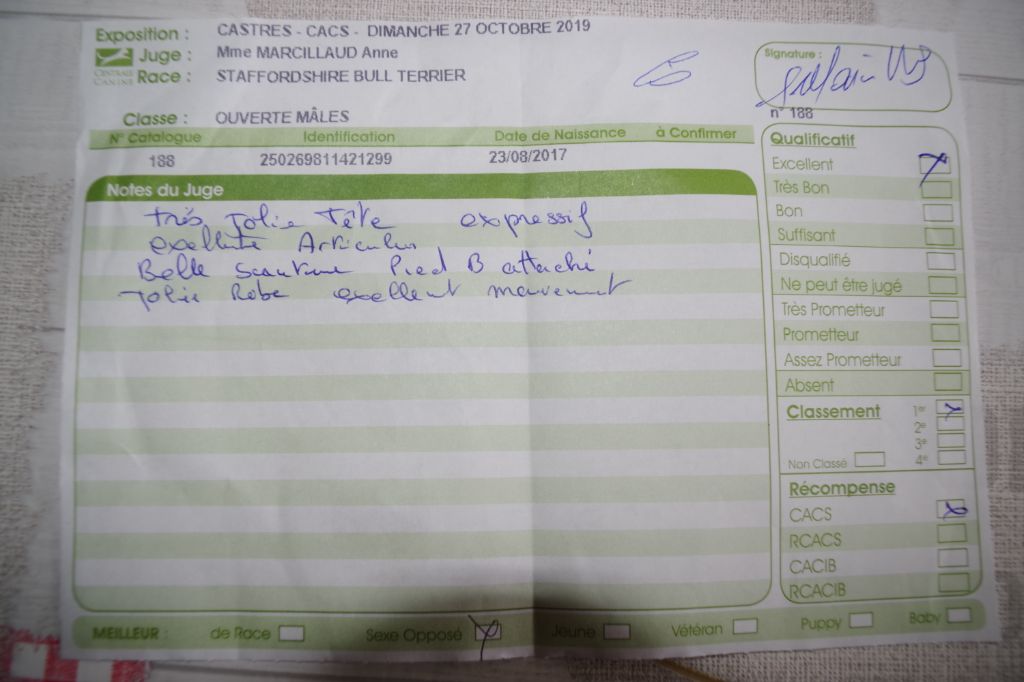 Exposition : CASTRES - CACS - DIMANCHE 27 OCTOBRE 2019
Juge : Mme MARCILLAUD Anne
CENTRALE CANINE
Race : STAFFORDSHIRE BULL TERRIER
Signature :
n° 188
Classe : OUVERTE MÂLES
N° Catalogue Identification Date de Naissance à Confirmer
188 250269811421299 23/08/2017
Notes du Juge
très Jolie Tête expressif
exellente Articulus
Belle Pied B attaché
Jolie Robe exellent
Qualificatif
Excellent
Très Bon
Bon
Suffisant
Disqualifié
Ne peut être jugé
Très Prometteur
Prometteur
Assez Prometteur
Absent
Classement 1er
2e
3e
Non Classé 4e
Récompense
CACS
RCACS
CACIB
RCACIB
MEILLEUR : de Race Sexe Opposé Jeune Vétéran Puppy Baby